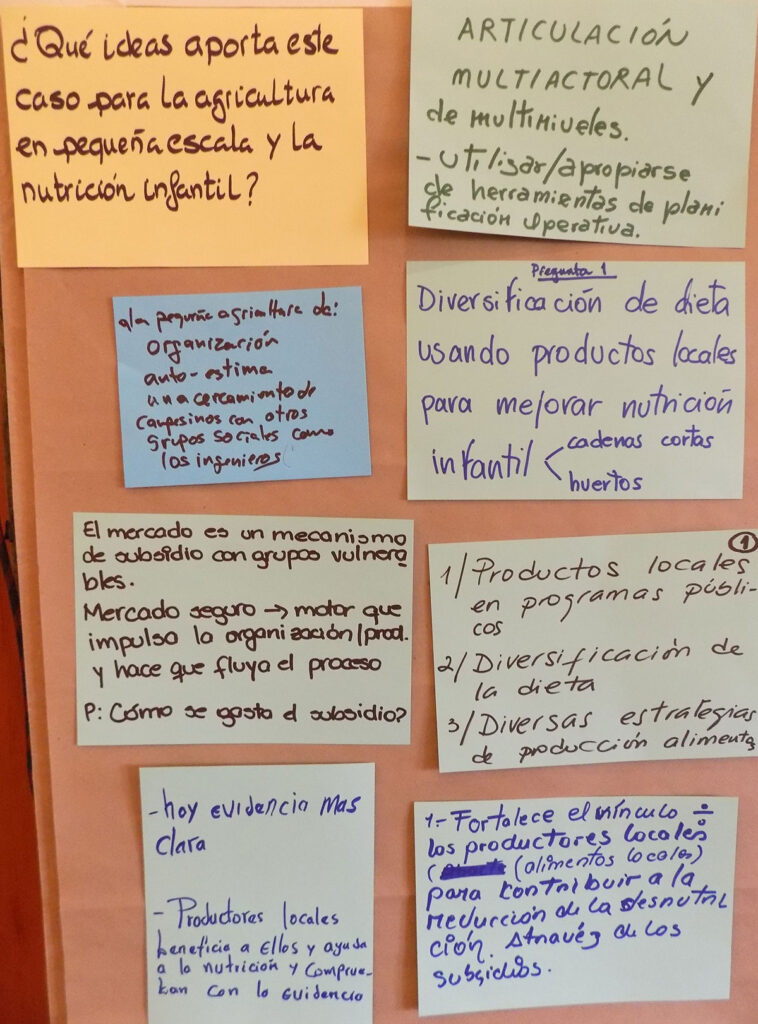 ¿Qué ideas aporta este
caso para la agricultura
en pequeña escala y la
nutrición infantil?
ARTICULACIÓN
MULTIACTORAL y
de multiniveles.
- utilizar/apropiarse
de herramientas de plani
ficación operativa.
a la pequeña agricultura da:
organización
auto-estima
un acercamiento de
campesinos con otros
grupos sociales como
los ingenieros
Pregunta 1
Diversificación de dieta
usando productos locales
para mejorar nutrición
infantil < cadenas cortas
huertos
El mercado es un mecanismo
de subsidio con grupos vulnera
bles.
Mercado seguro → motor que
impulsa la organización/prod.
y hace que fluya el proceso
P: Cómo se gasta el subsidio?
1
1/ Productos locales
en programas públi-
cos
2/ Diversificación de
la dieta
3/ Diversas estrategias
de producción alimentos
- hay evidencia mas
clara
- Productores locales
beneficia a Ellos y ayuda
a la nutrición y comprue-
ban con la evidencia
1.- Fortalece el vínculo ÷
los productores locales
(alimentos locales)
para contribuir a la
reducción de la desnutri
ción. Através de los
subsidios.